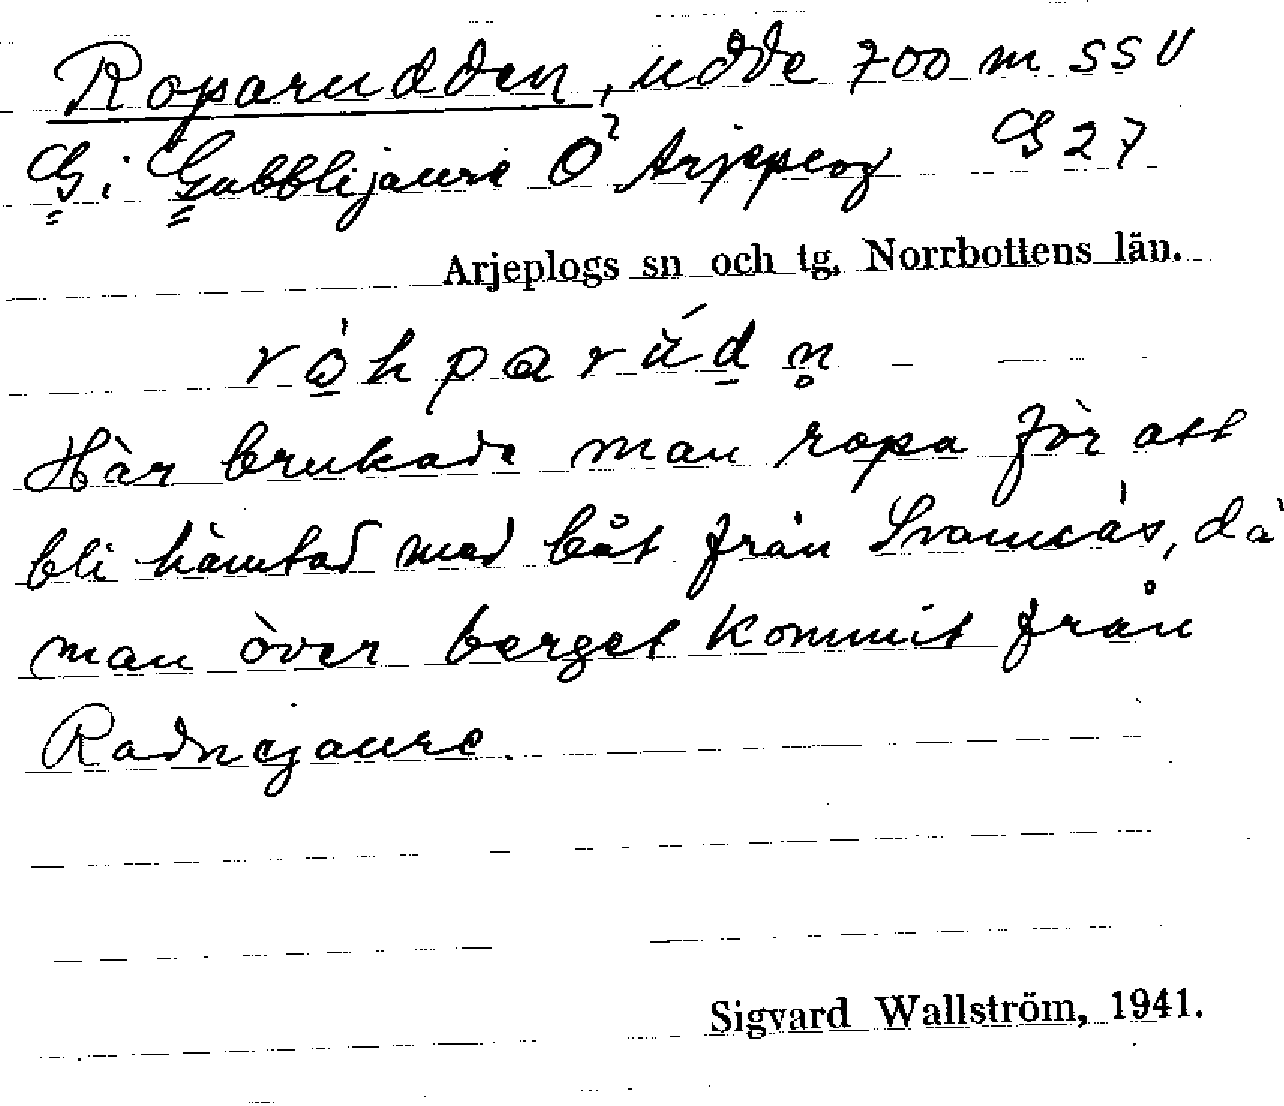 Roparudden, udde 700 m SSV
G i Gubblijaure Ö? Arjeplog G 27
Arjeplogs sn och tg, Norrbottens län.
Här brukade man ropa för att
bli hämtad med båt från Svannäs, då
man över berget kommit från
Radnejaure.
Sigvard Wallström, 1941.